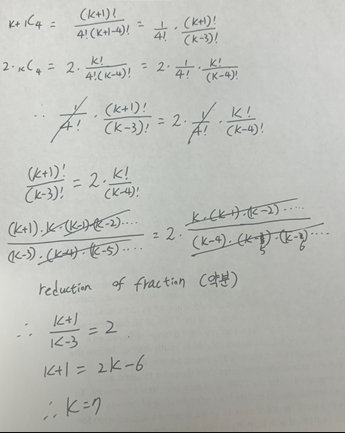 k+1C4 = (k+1)! / 4!(k+1-4)! = 1/4! · (k+1)! / (k-3)!
2·kC4 = 2· k! / 4!(k-4)! = 2· 1/4! · k! / (k-4)!
∴ 1/4! · (k+1)! / (k-3)! = 2· 1/4! · k! / (k-4)!
(k+1)! / (k-3)! = 2· k! / (k-4)!
(k+1)·k·(k-1)·(k-2)···· / (k-3)·(k-4)·(k-5)···· = 2· k·(k-1)·(k-2)···· / (k-4)·(k-5)·(k-6)····
reduction of fraction (약분)
∴ k+1 / k-3 = 2
k+1 = 2k-6
∴ k=7